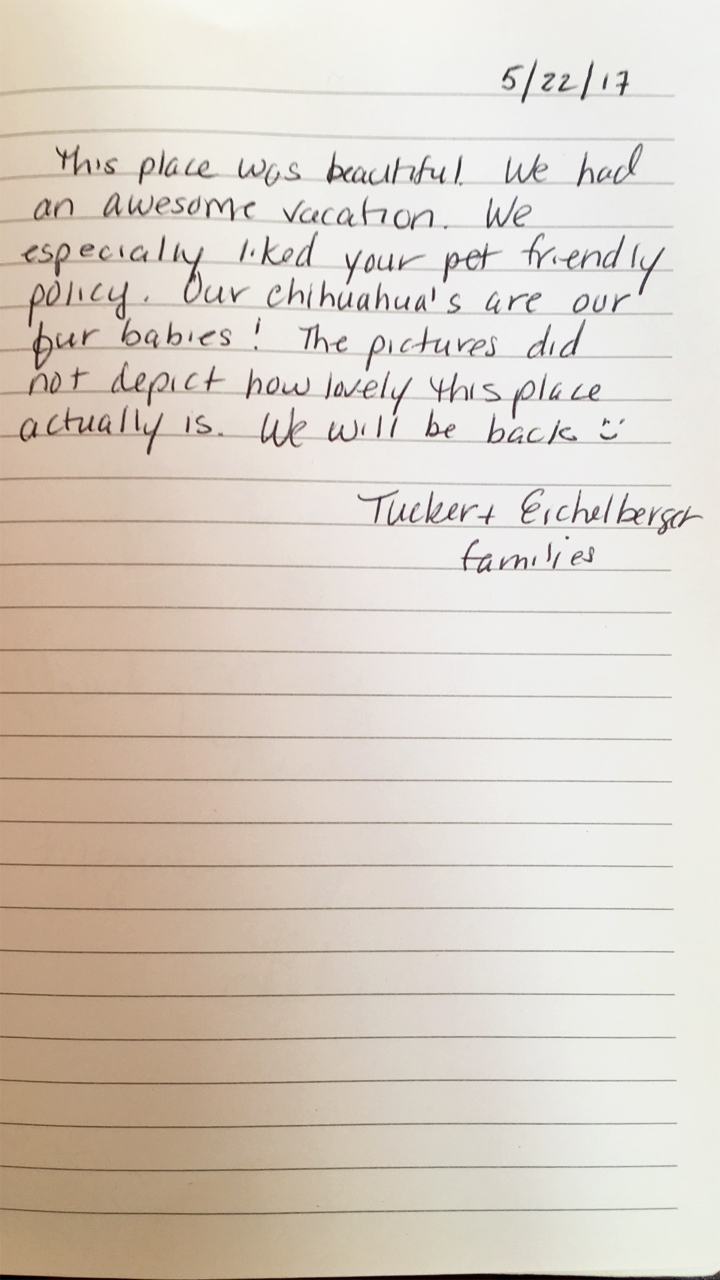 5/22/17
This place was beautiful. We had
an awesome vacation. We
especially liked your pet friendly
policy. Our chihuahua's are our
fur babies! The pictures did
not depict how lovely this place
actually is. We will be back :)
Tucker + Eichelberger
families